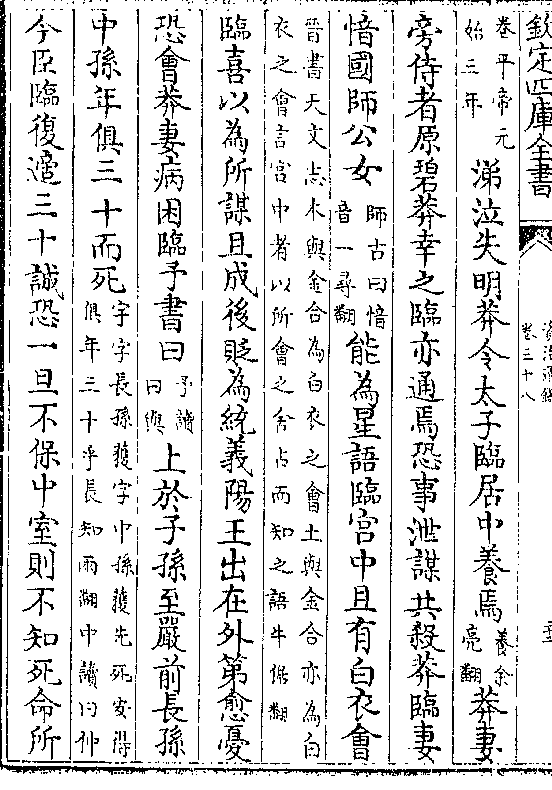 欽定四庫全書
資治通鑑
卷三十八
卷平帝元
始三年
涕泣失明莽令太子臨居中養焉
養余
亮翻
莽妻
旁侍者原碧莽幸之臨亦通焉恐事泄謀共殺莽臨妻
愔國師公女
師古曰愔
音一尋翻
能為星語臨宮中且有白衣會
晉書天文志木與金合為白衣之會土與金合亦為白
衣之會言宮中者以所會之分占而知之語牛倨翻
臨喜以為所謀且成後貶為統義陽王出在外第愈憂
恐會莽妻病困臨予書曰
予讀
曰與
上於子孫至嚴前長孫
中孫年俱三十而死
宇字長孫獲字中孫獲先死安得
俱年三十乎長知兩翻中讀曰仲
今臣臨復適三十誠恐一旦不保中室則不知死命所